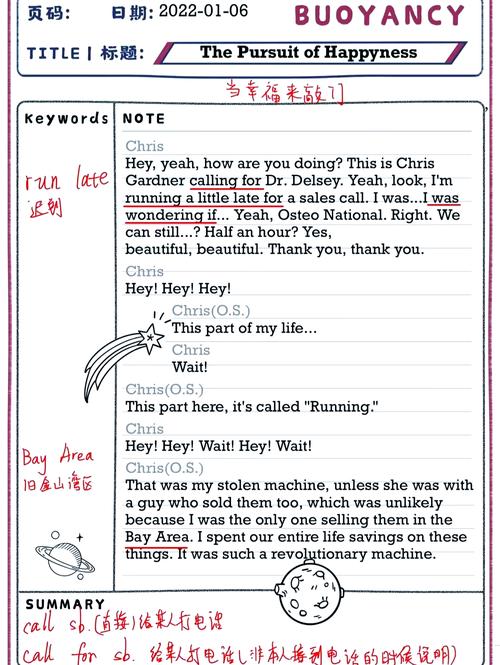 页码: 日期: 2022-01-06 BUOYANCY
TITLE | 标题: The Pursuit of Happyness
当幸福来敲门
Keywords NOTE
Chris
Hey, yeah, how are you doing? This is Chris
Gardner calling for Dr. Delsey. Yeah, look, I'm
running a little late for a sales call. I was...I was
wondering if... Yeah, Osteo National. Right. We
can still...? Half an hour? Yes,
beautiful, beautiful. Thank you, thank you.
run late
迟到
Chris
Hey! Hey! Hey!
Chris(O.S.)
This part of my life...
Chris
Wait!
Chris(O.S.)
This part here, it's called "Running."
Chris
Hey! Hey! Wait! Hey! Wait!
Chris(O.S.)
That was my stolen machine, unless she was with
a guy who sold them too, which was unlikely
because I was the only one selling them in the
Bay Area. I spent our entire life savings on these
things. It was such a revolutionary machine.
Bay Area
旧金山湾区
SUMMARY
call sb.(直接)给某人打电话
call for sb. 给某人打电话(非本人接到电话的时候说明)